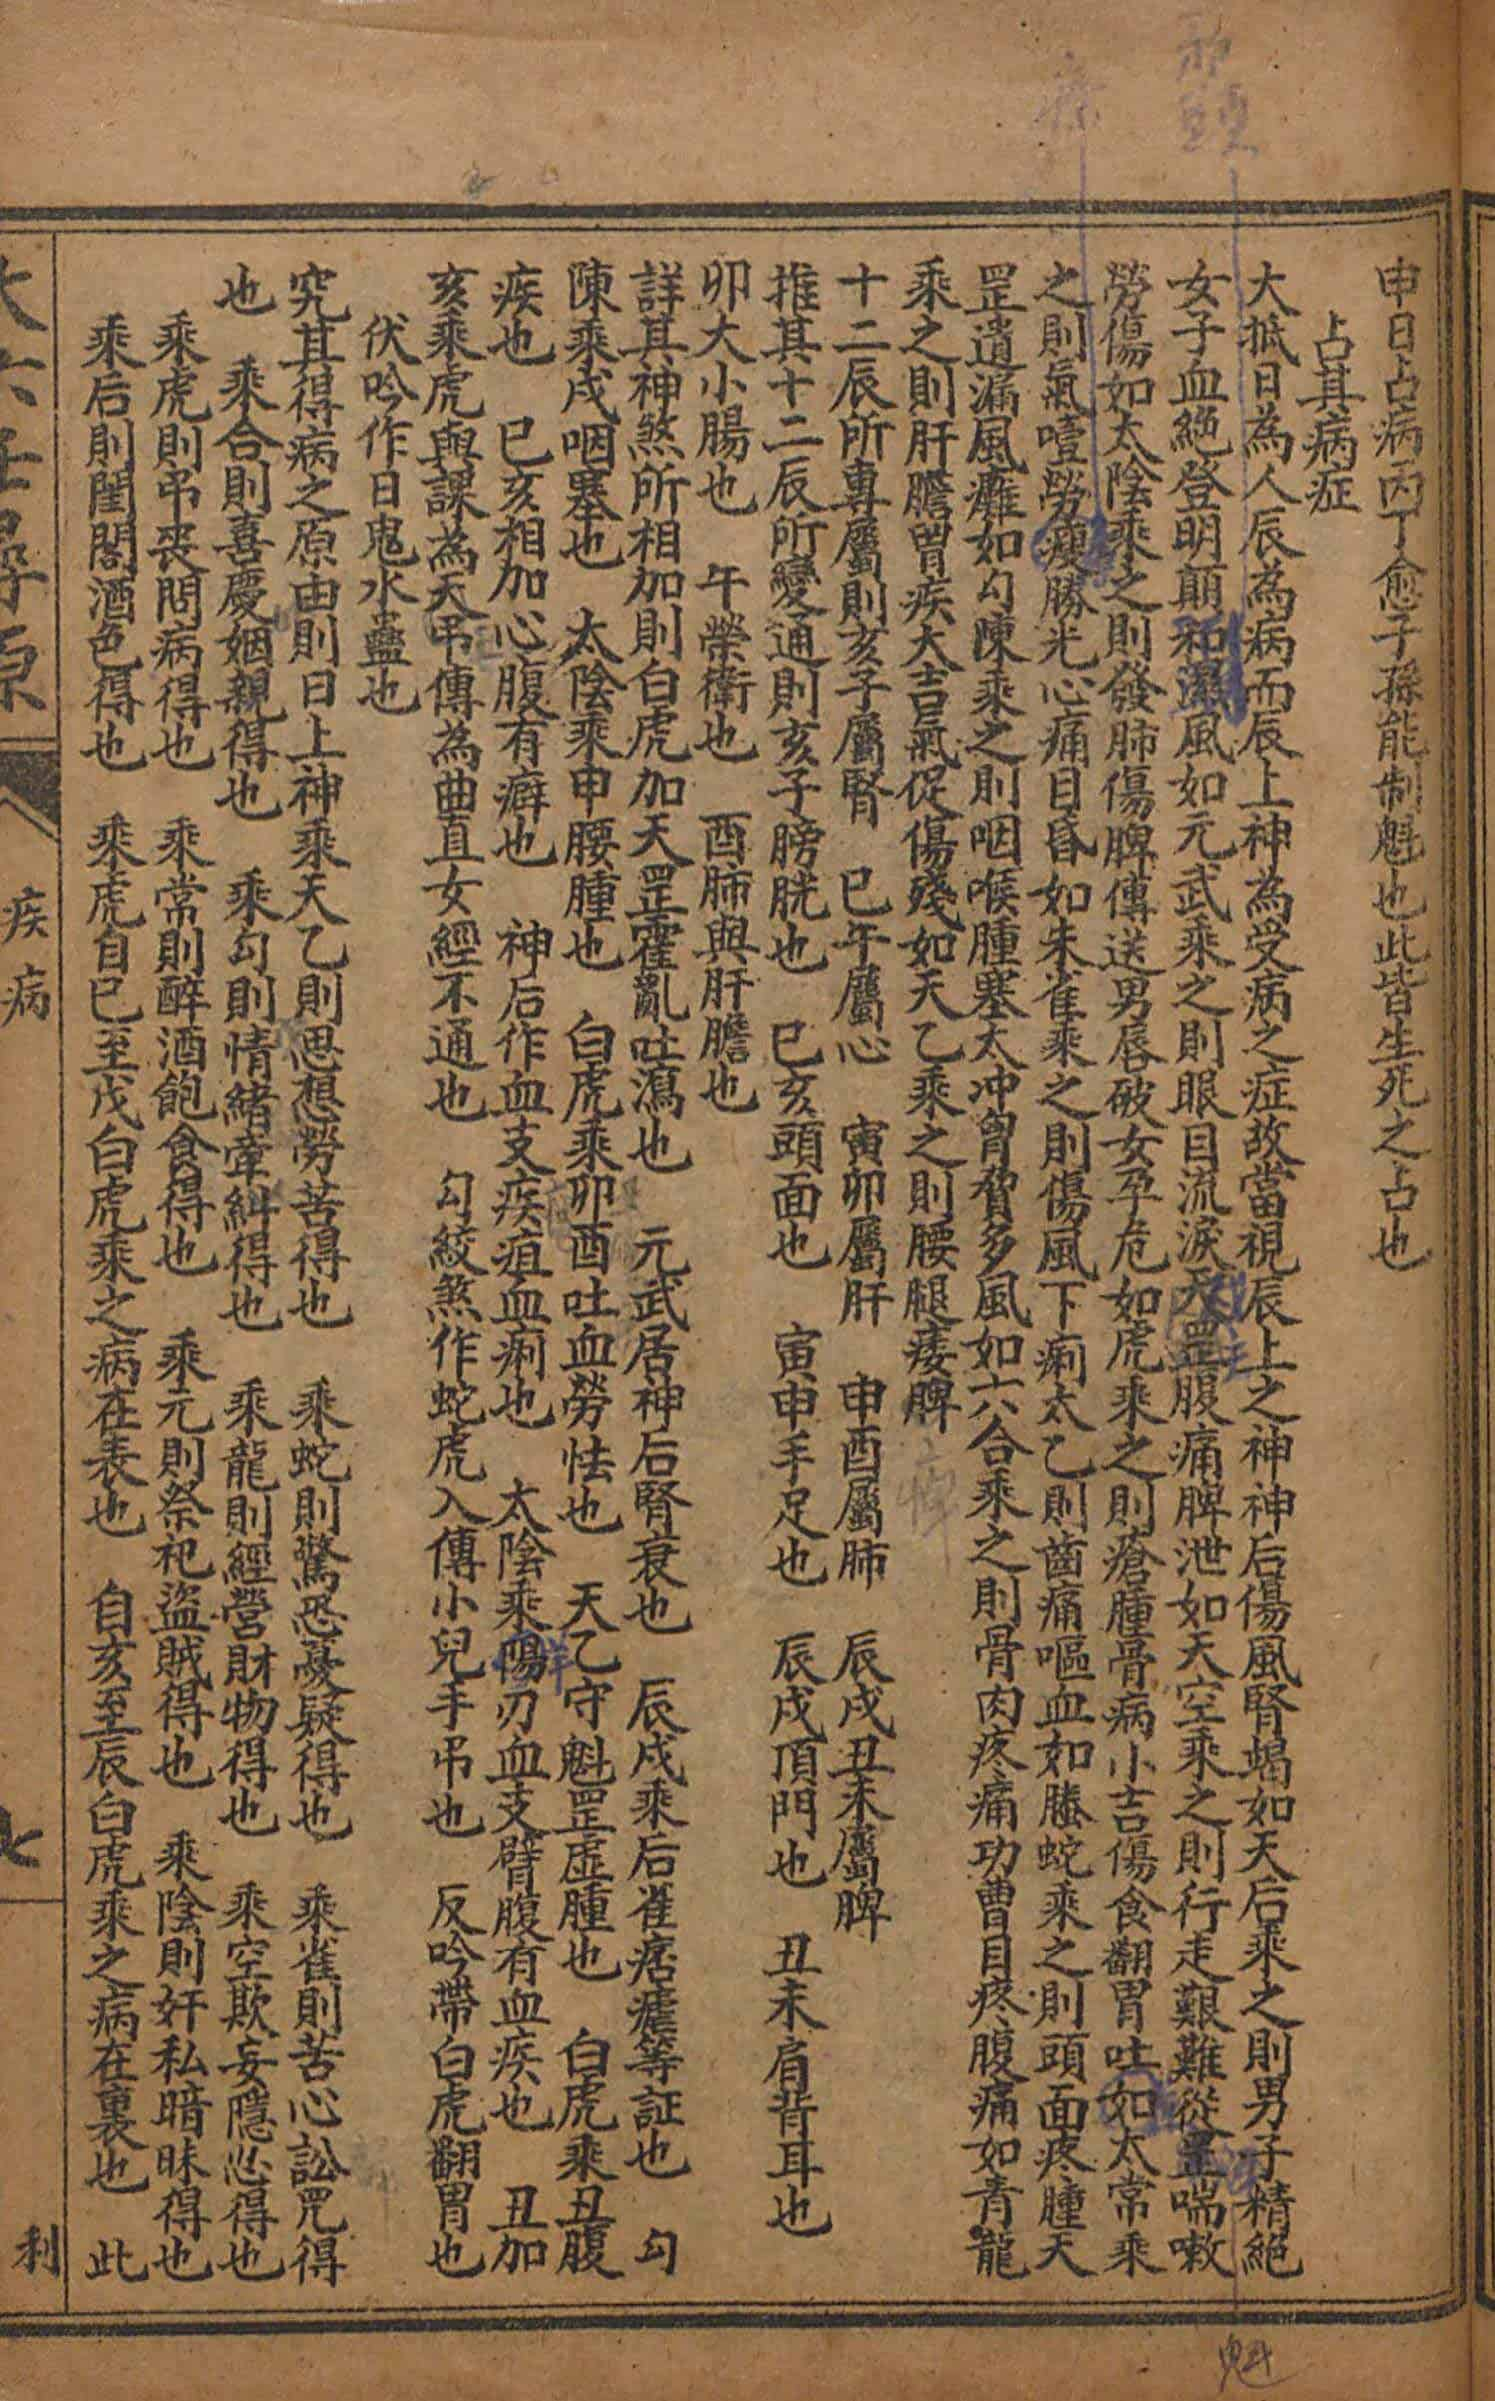 申日占病丙丁愈子孫能制魁也此皆生死之占也
占其病症
大抵日為人辰為病而辰上神為受病之症故當視辰上之神神后傷風腎竭如天后乘之則男子精絕
女子血絕登明顛和濕風如元武乘之則眼目流淚天罡腹痛脾泄如天空乘之則行走艱難從罡喘嗽
勞傷如太陰乘之則發肺傷脾傳送男唇破女孕危如虎乘之則瘡腫骨病小吉傷食翻胃吐如太常乘
之則氣噎勞瘦勝光心痛目昏如朱雀乘之則傷風下痢太乙則齒痛嘔血如螣蛇乘之則頭面疼腫天
罡遺漏風癱如勾陳乘之則咽喉腫塞太冲胷脅多風如六合乘之則骨肉疼痛功曹目疼腹痛如青龍
乘之則肝膽胃疾大吉氣促傷殘如天乙乘之則腰腿痿脾
十二辰所專屬則亥子屬腎　巳午屬心　寅卯屬肝　申酉屬肺　辰戌丑未屬脾
推其十二辰所變通則亥子膀胱也　巳亥頭面也　寅申手足也　辰戌頂門也　丑未肩背耳也
卯大小腸也　午榮衛也　酉肺與肝膽也
詳其神煞所相加則白虎加天罡霍亂吐瀉也　元武居神后腎衰也　辰戌乘后雀痞瘧等証也　勾
陳乘戌咽塞也　太陰乘申腰腫也　白虎乘卯酉吐血勞怯也　天乙守魁罡虛腫也　白虎乘丑腹
疾也　巳亥相加心腹有癖也　神后作血支疾疽血痢也　太陰乘陽刃血支臂腹有血疾也　丑加
亥乘虎與課為天弔傳為曲直女經不通也　勾絞煞作蛇虎入傳小兒手弔也　反吟帶白虎翻胃也
伏吟作日鬼水蠱也
究其得病之原由則日上神乘天乙則思想勞苦得也　乘蛇則驚恐憂疑得也　乘雀則苦心訟咒得
也　乘合則喜慶姻親得也　乘勾則情緒牽糾得也　乘龍則經營財物得也　乘空欺妄隱忿得也
乘虎則弔喪問病得也　乘常則醉酒飽食得也　乘元則祭祀盜賊得也　乘陰則奸私暗昧得也
乘后則閨閣酒色得也　乘虎自巳至戌白虎乘之病在表也　自亥至辰白虎乘之病在裏也　此
疾病
利
頭
魁